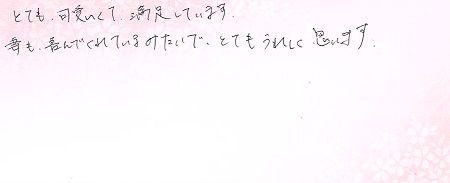 とても、可愛いくて、満足しています。
妻も、喜んでくれているみたいで、とてもうれしく思います。